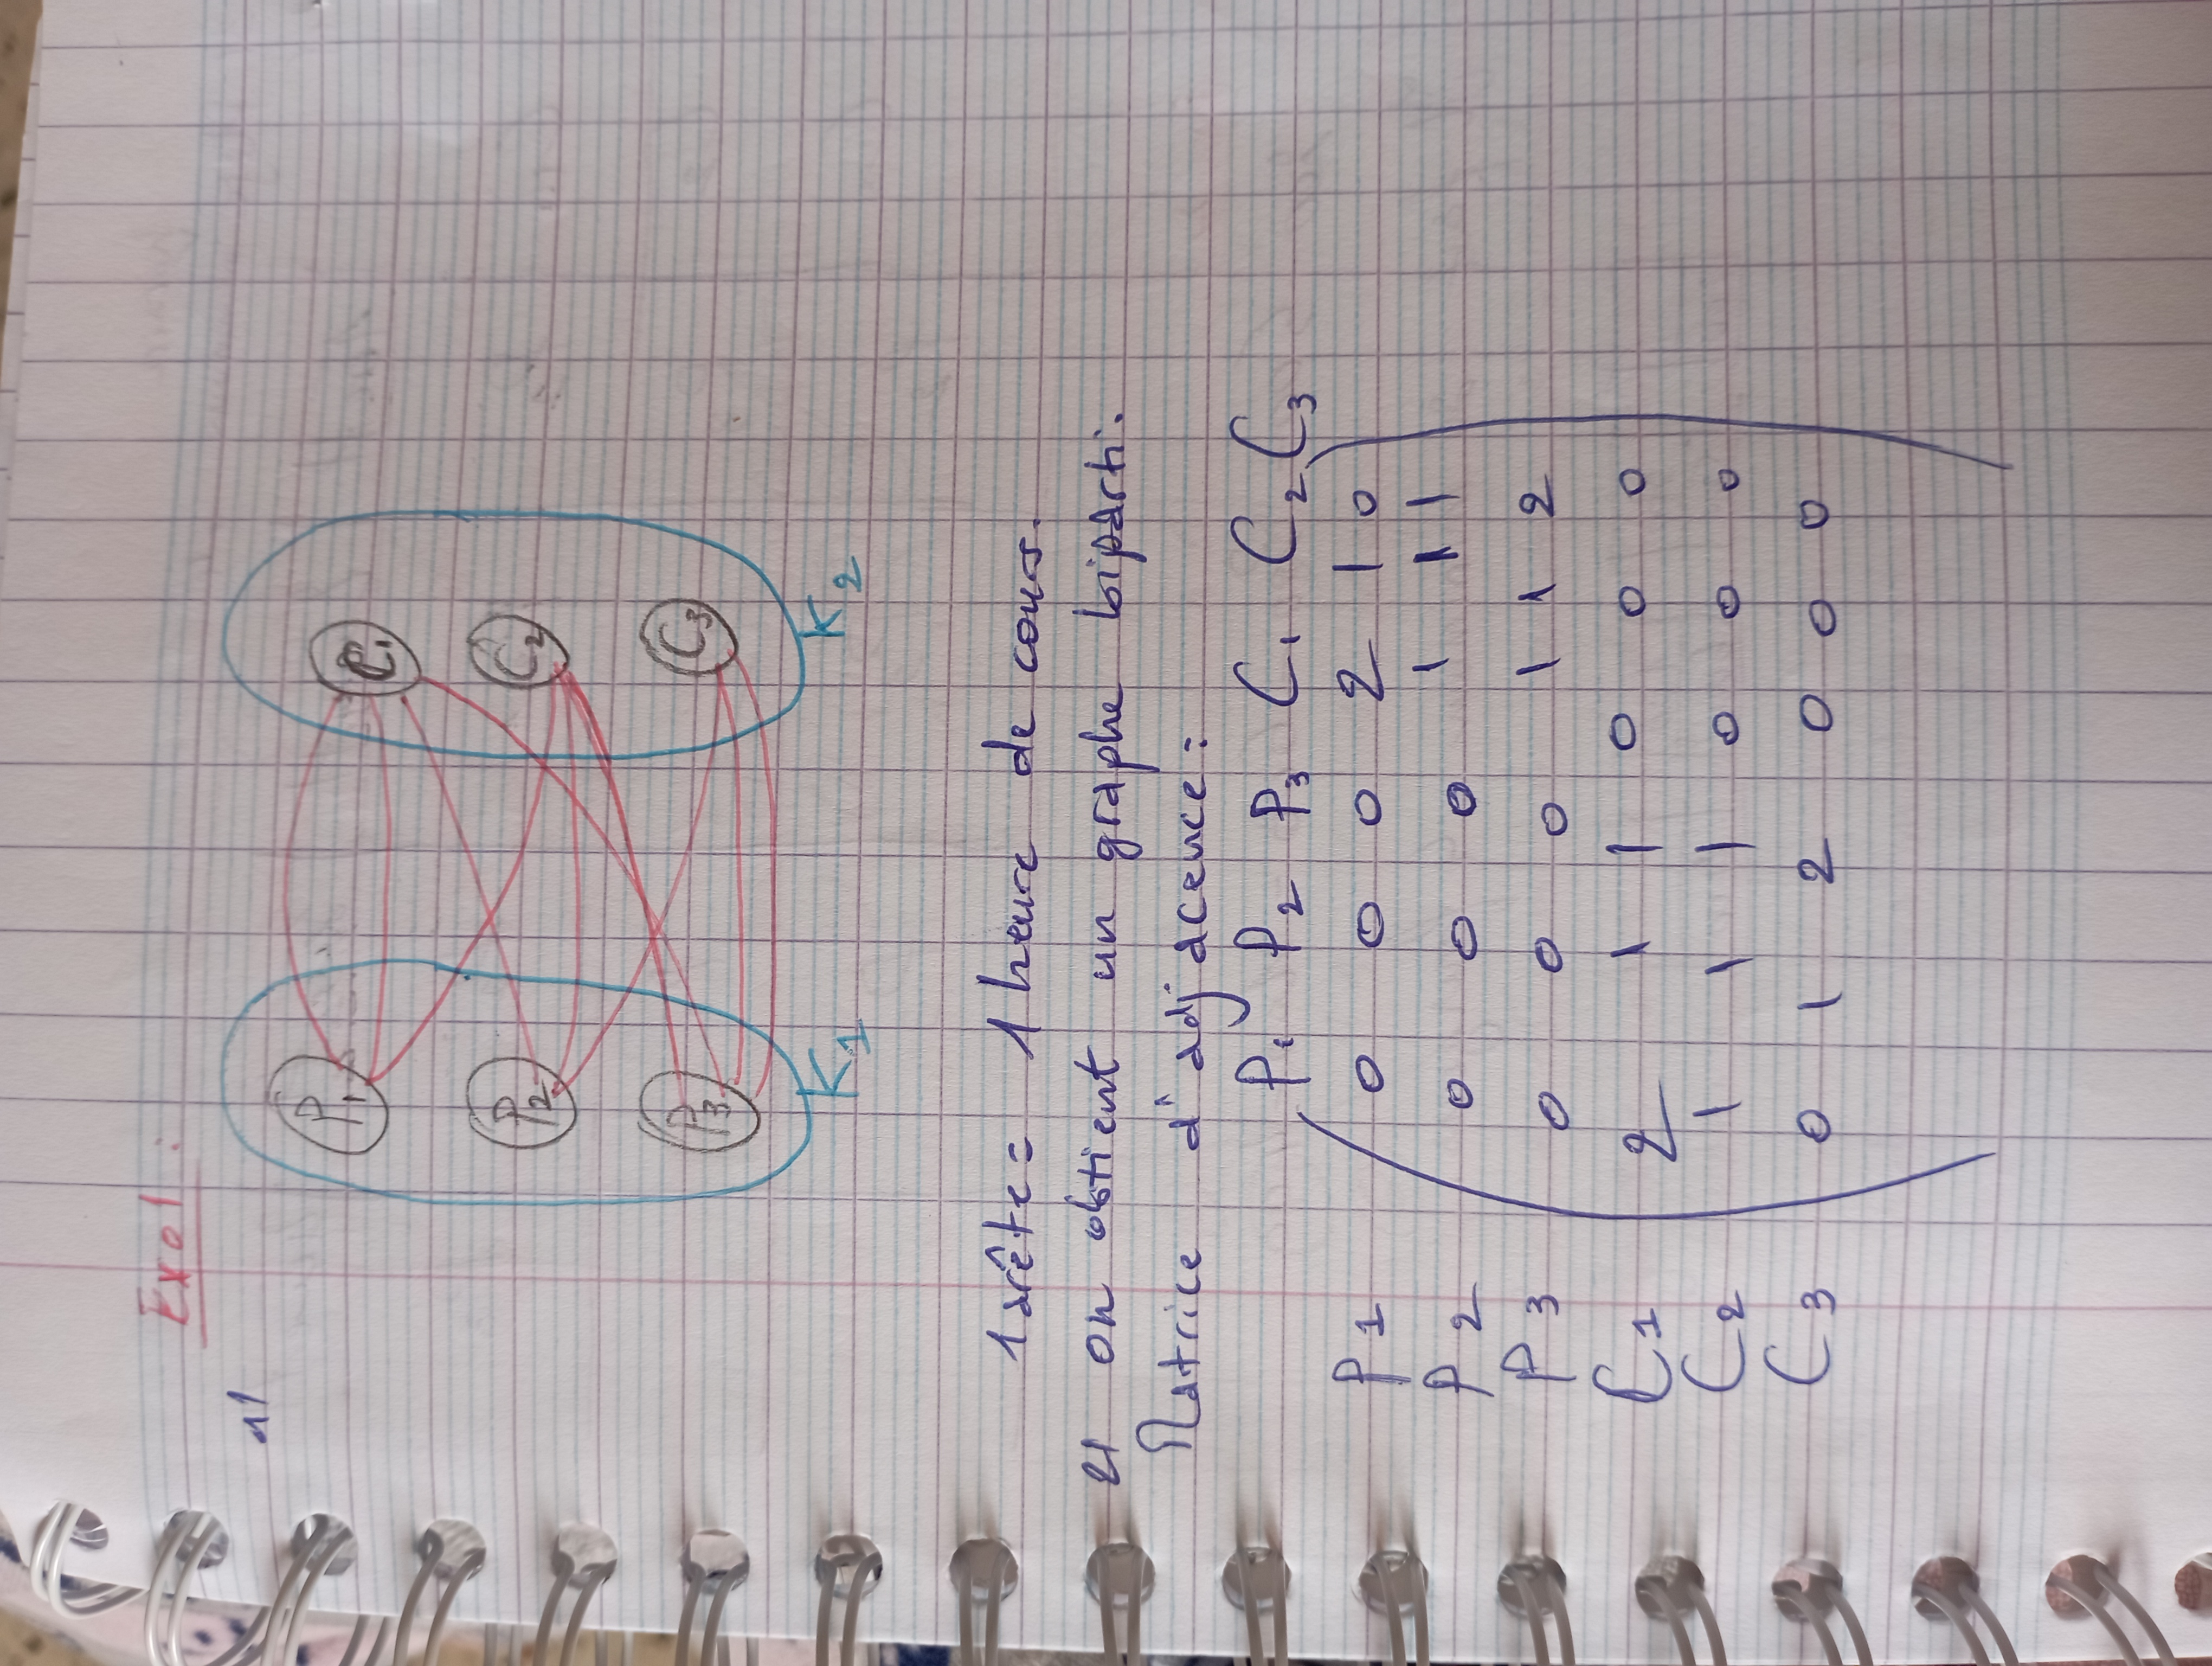 Exo1 :
1/
P1 C1
P2 C2
P3 C3
K1 K2
1 arête = 1 heure de cours.
2/ on obtient un graphe biparti.
Matrice d'adjacence :
P1 P2 P3 C1 C2 C3
P1 0 0 0 2 1 0
P2 0 0 0 1 1 1
P3 0 0 0 1 1 2
C1 2 1 1 0 0 0
C2 1 1 1 0 0 0
C3 0 1 2 0 0 0